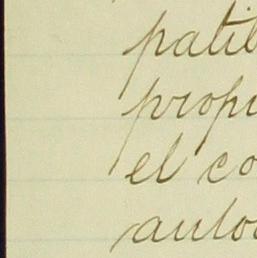 patib
propi
el co
auto